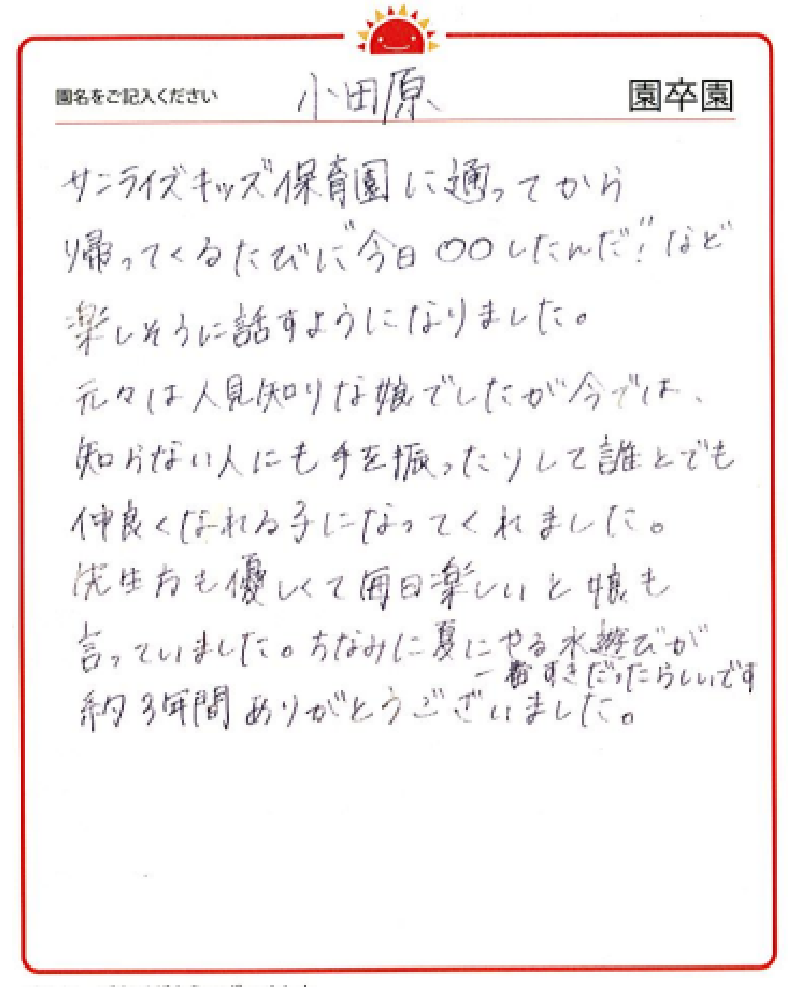 園名をご記入ください 小田原 園卒園
サンライズキッズ保育園に通ってから
帰ってくるたびに"今日〇〇したんだ!"など
楽しそうに話すようになりました。
元々は人見知りな娘でしたが今では、
知らない人にも手を振ったりして誰とでも
仲良くなれる子になってくれました。
先生方も優しくて毎日楽しいと娘も
言っていました。ちなみに夏にやる水遊びが
一番すきだったらしいです
約3年間ありがとうございました。